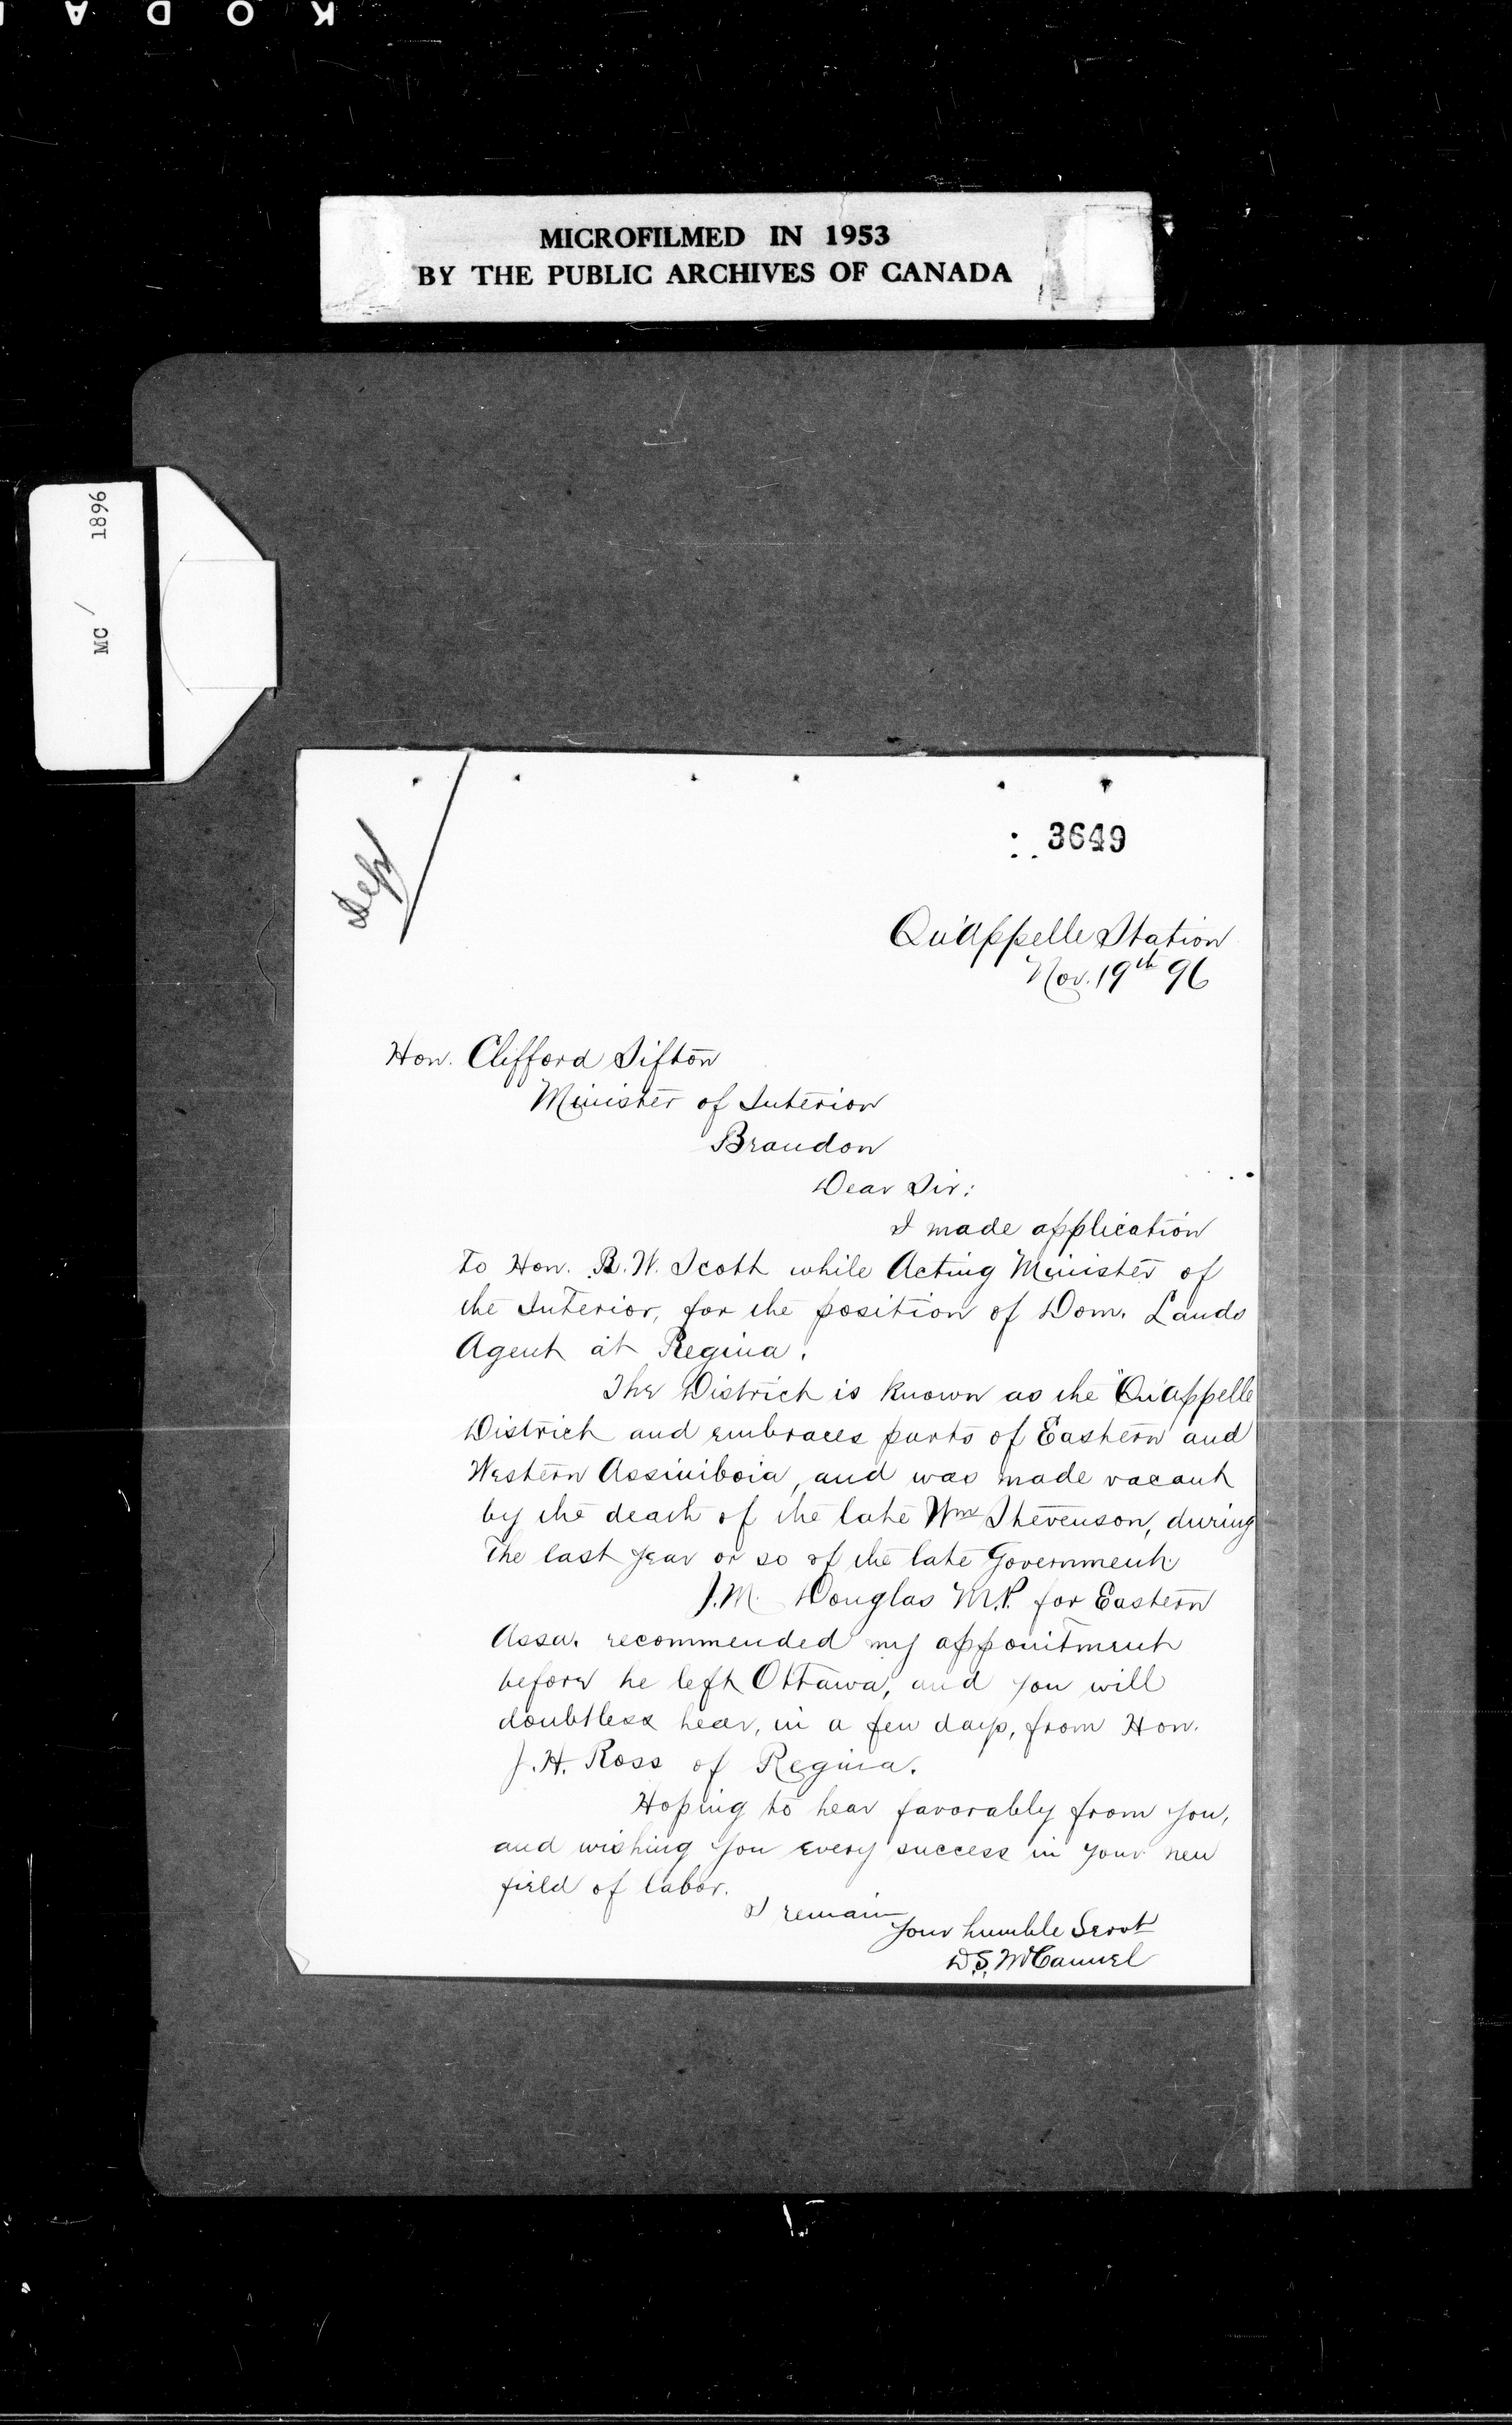 KODA
MICROFILMED IN 1953
BY THE PUBLIC ARCHIVES OF CANADA
MC / 1896
3649
Qu'Appelle Station
Nov. 19th 96
Hon. Clifford Sifton
Minister of Interior
Brandon
Dear Sir:
I made application
to Hon. R. W. Scott while Acting Minister of
the Interior, for the position of Dom. Lands
Agent at Regina.
The District is known as the "Qu'Appelle
District and embraces parts of Eastern and
Western Assiniboia, and was made vacant
by the death of the late Wm Stevenson, during
the last year or so of the late Government.
J. M. Douglas M.P. for Eastern
Assa. recommended my appointment
before he left Ottawa, and you will
doubtless hear, in a few days, from Hon.
J. H. Ross of Regina.
Hoping to hear favorably from you,
and wishing you every success in your new
field of labor.
I remain
Your humble Servt
D. S. McCannel